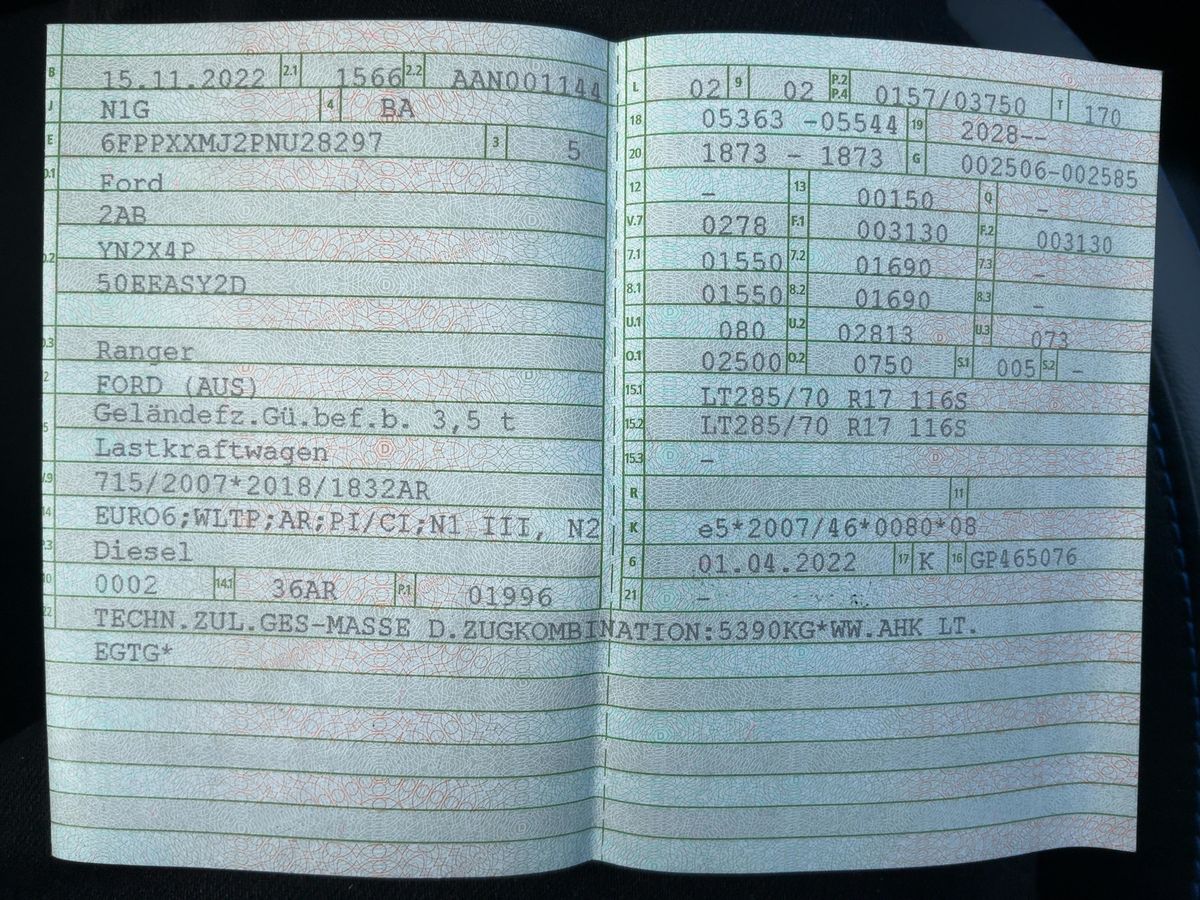 B 15.11.2022 2.1 1566 2.2 AAN001144
J N1G 4 BA
E 6FPPXXMJ2PNU28297 3 5
D.1 Ford
2AB
D.2 YN2X4P
50EEASY2D
D.3 Ranger
2 FORD (AUS)
Geländefz.Gü.bef.b. 3,5 t
5 Lastkraftwagen
V.9 715/2007*2018/1832AR
14 EURO6;WLTP;AR;PI/CI;N1 III, N2
P.3 Diesel
10 0002 14.1 36AR P.1 01996
22 TECHN.ZUL.GES-MASSE D.ZUGKOMBINATION:5390KG*WW.AHK LT.
EGTG*
L 02 9 02 P.2 P.4 0157/03750 T 170
18 05363 -05544 19 2028--
20 1873 - 1873 G 002506-002585
12 - 13 00150 Q -
V.7 0278 F.1 003130 F.2 003130
7.1 01550 7.2 01690 7.3 -
8.1 01550 8.2 01690 8.3 -
U.1 080 U.2 02813 U.3 073
O.1 02500 O.2 0750 S.1 005 S.2 -
15.1 LT285/70 R17 116S
15.2 LT285/70 R17 116S
15.3 -
R 11
K e5*2007/46*0080*08
6 01.04.2022 17 K 16 GP465076
21 -